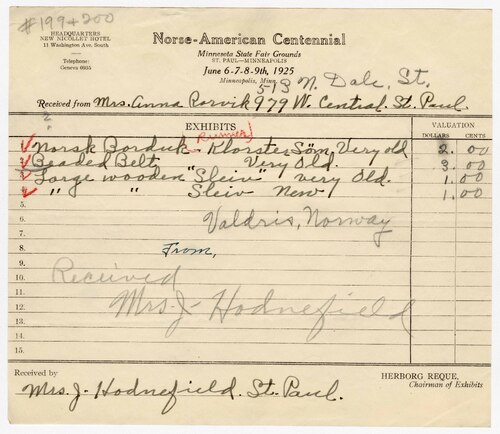 #199+200
HEADQUARTERS
NEW NICOLLET HOTEL
11 Washington Ave. South
Telephone:
Geneva 6935
Norse-American Centennial
Minnesota State Fair Grounds
ST. PAUL—MINNEAPOLIS
June 6-7-8-9th, 1925
Minneapolis, Minn.
513 N. Dale, St.
Received from Mrs. Anna Rorvik 979 W. Central. St. Paul.
?
EXHIBITS
VALUATION
DOLLARS CTS.
Norsk Borduk - Klorster Söm, Very old 2.00
Beaded Belt Very Old. 3.00
Large wooden "Sleiv" very Old. 1.00
" " Sleiv New 1.00
5.
6. Valdris, Norway
7.
8. From,
9.
10. Received
11.
12. Mrs. J- Hodnefield
13.
14.
15.
Received by
Mrs. J. Hodnefield. St. Paul.
HERBORG REQUE,
Chairman of Exhibits